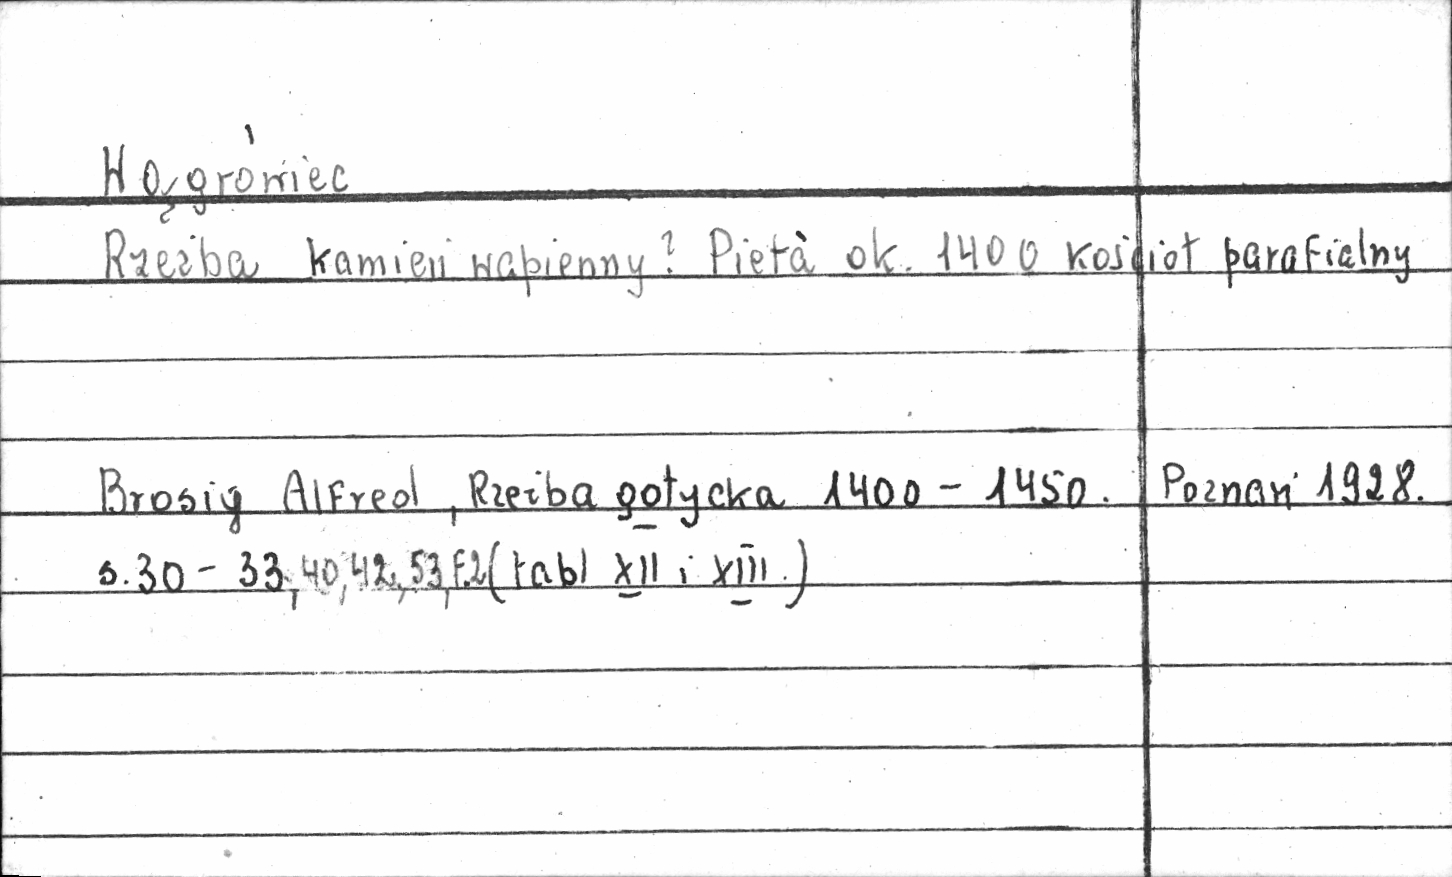 Wągrówiec
Rzeźba kamień wapienny? Pietà ok. 1400 kościół parafialny
Brosig Alfred, Rzeźba gotycka 1400 - 1450. Poznań 1928.
s. 30 - 33, 40, 42, 53, (tabl XII i XIII.)